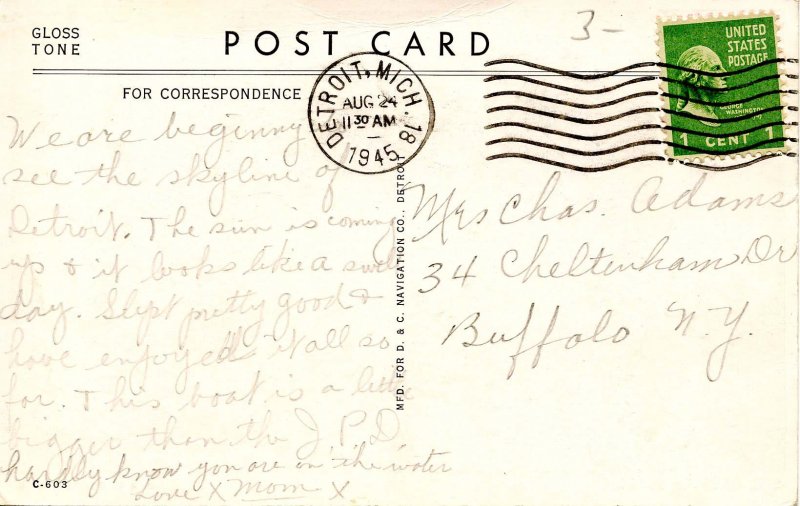 GLOSS
TONE
POST CARD
3-
UNITED
STATES
POSTAGE
GEORGE
WASHINGTON
1 CENT 1
FOR CORRESPONDENCE
DETROIT, MICH. 18
AUG 24
11 30 AM
1945
We are beginning
see the skyline of
Detroit. The sun is coming
up & it looks like a swell
day. Slept pretty good &
have enjoyed it all so
far. This boat is a little
bigger than the J P D.
hardly know you are on the water
Love X Mom X
MFD. FOR D. & C. NAVIGATION CO., DETROIT
Mrs Chas. Adams
34 Cheltenham Dr
Buffalo N.Y.
C-603